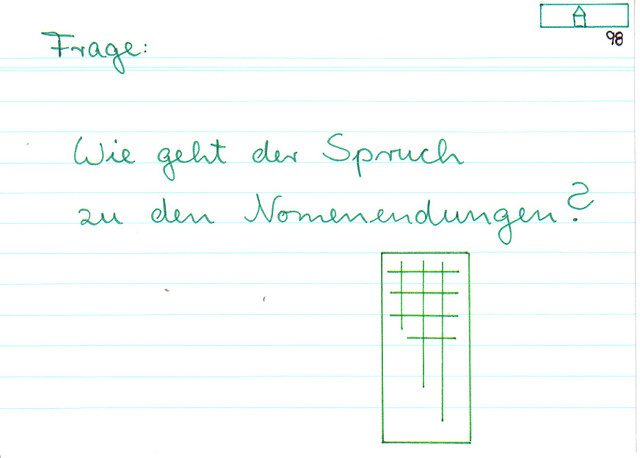 98
Frage:
Wie geht der Spruch
zu den Nomenendungen?